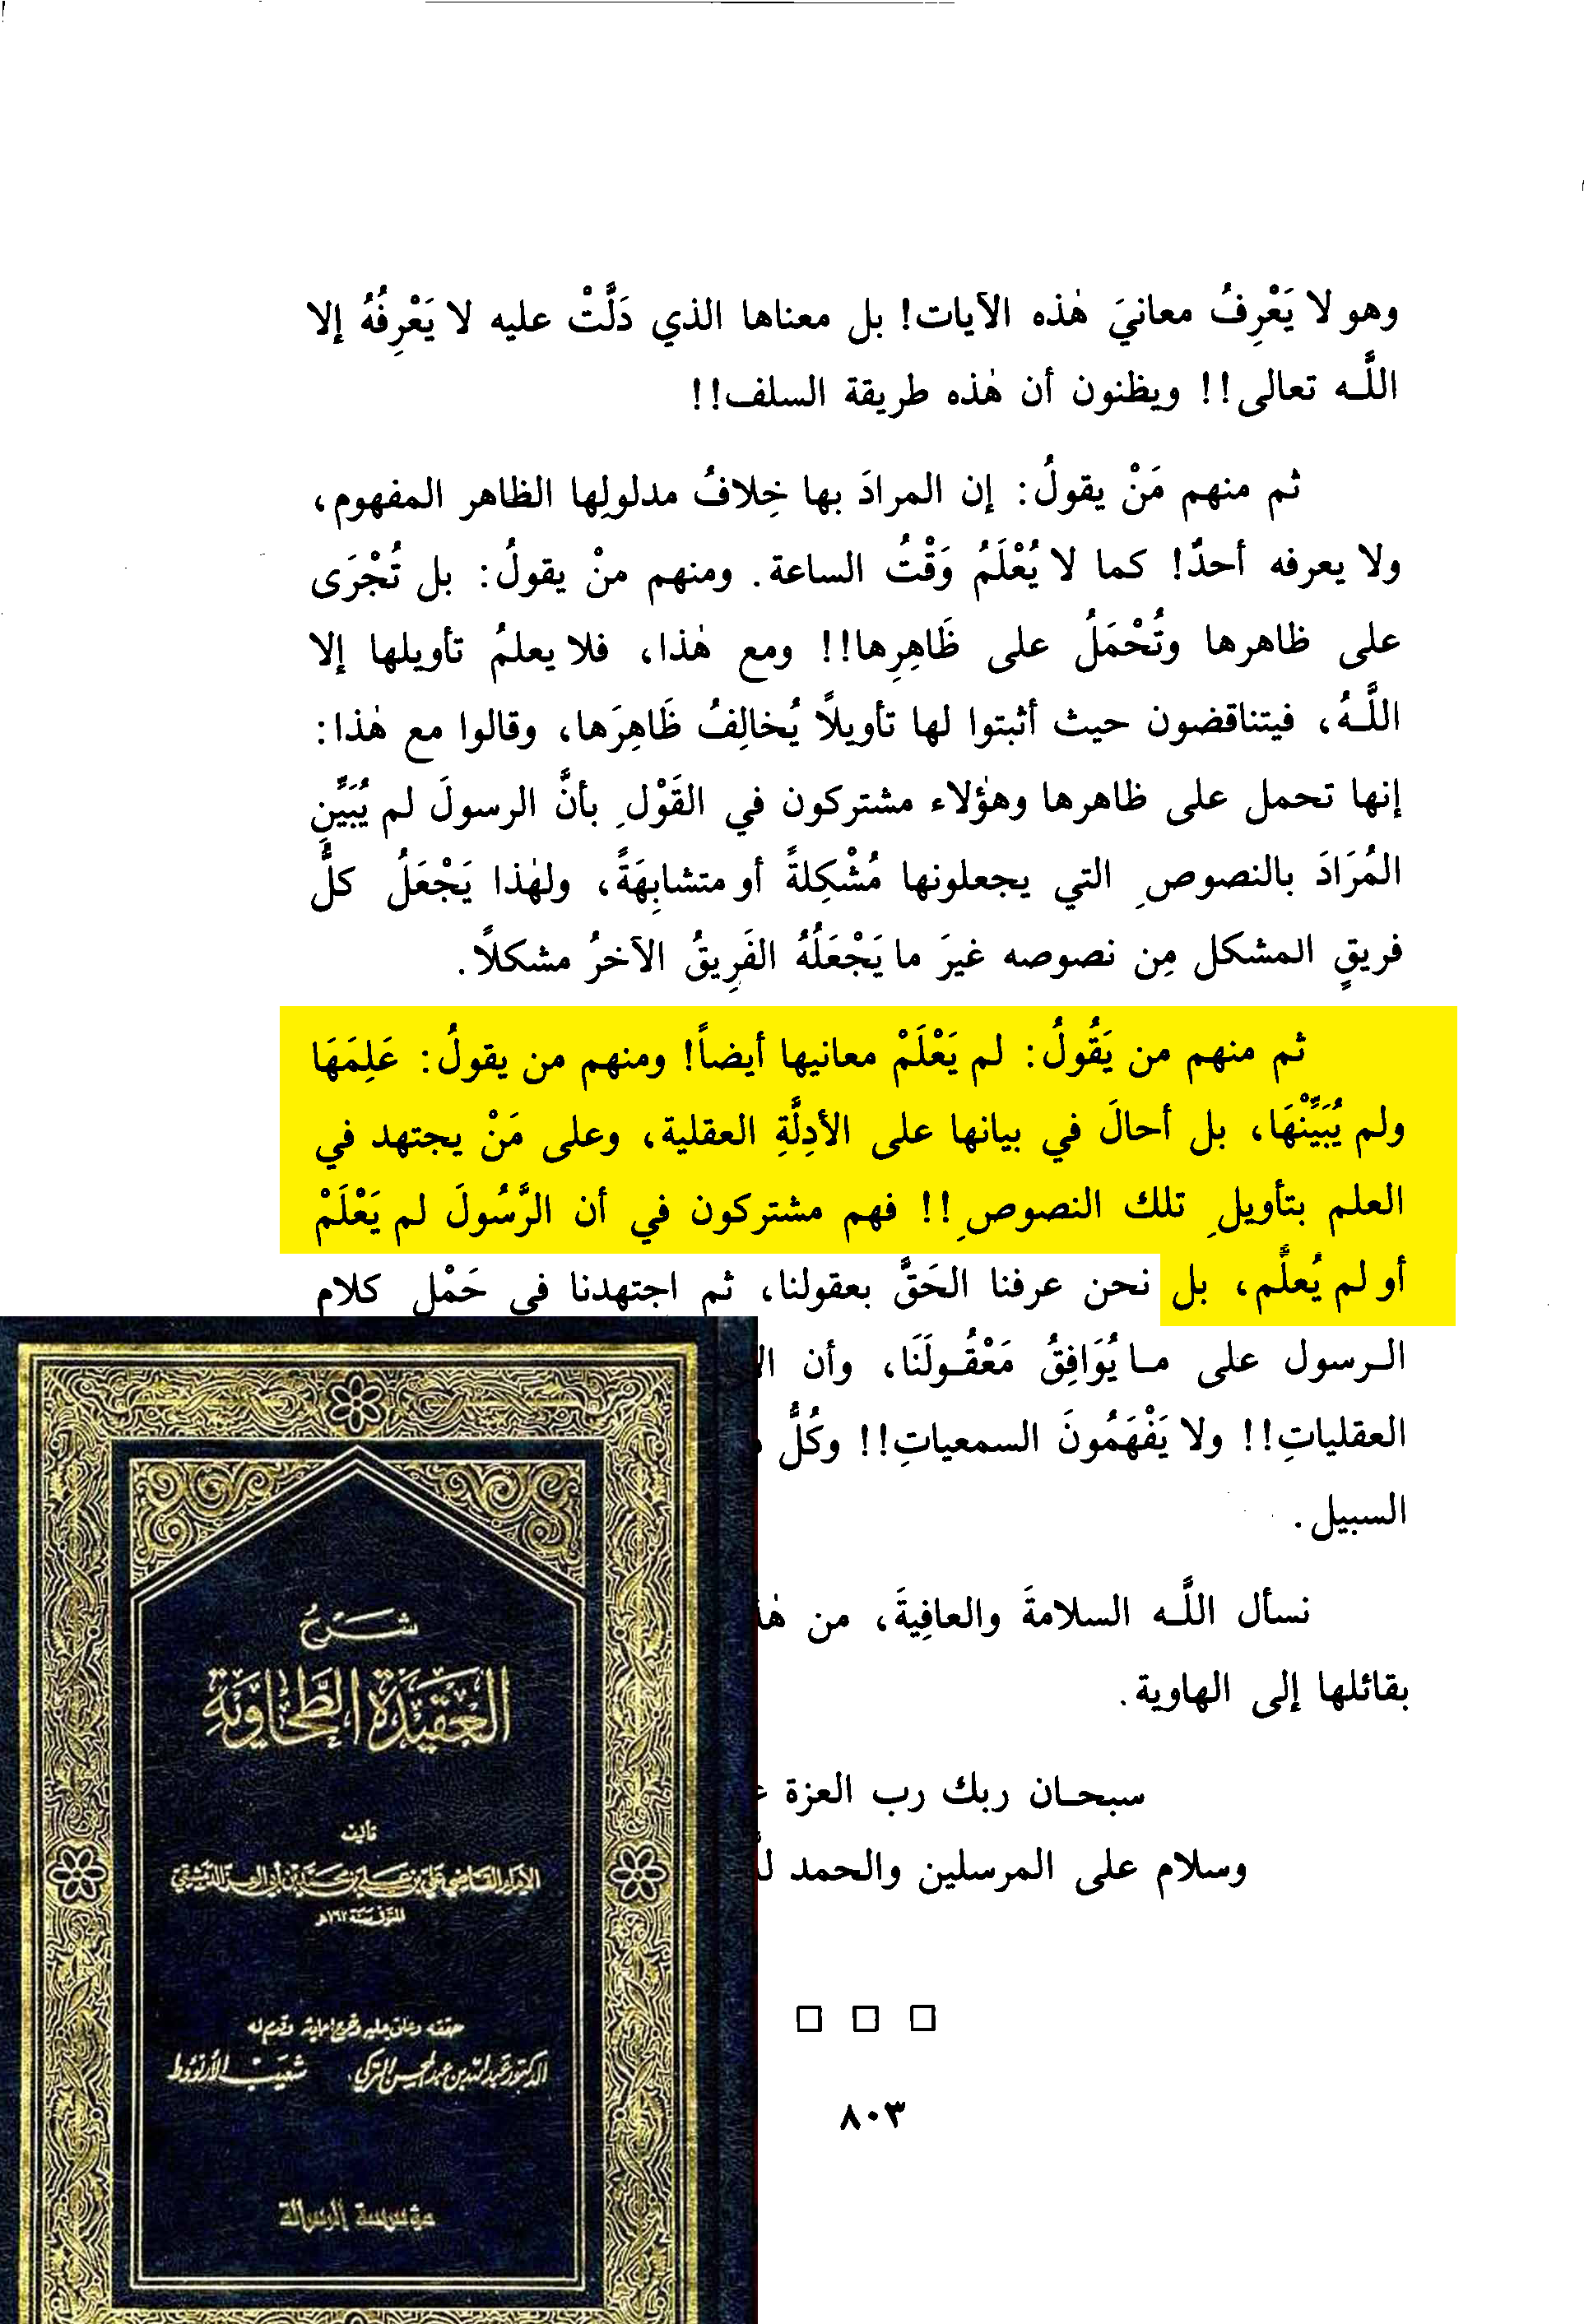 وهو لا يَعْرِفُ معانيَ هٰذه الآيات! بل معناها الذي دَلَّتْ عليه لا يَعْرِفُهُ إلا
اللَّه تعالى!! ويظنون أن هٰذه طريقة السلف!!
ثم منهم مَنْ يقولُ: إن المرادَ بها خِلافُ مدلولِها الظاهر المفهوم،
ولا يعرفه أحدٌ! كما لا يُعْلَمُ وَقْتُ الساعة. ومنهم منْ يقولُ: بل تُجْرَى
على ظاهرها وتُحْمَلُ على ظَاهِرِها!! ومع هٰذا، فلا يعلمُ تأويلها إلا
اللَّهُ، فيتناقضون حيث أثبتوا لها تأويلاً يُخالِفُ ظَاهِرَها، وقالوا مع هٰذا:
إنها تحمل على ظاهرها وهؤلاء مشتركون في القَوْلِ بأنَّ الرسولَ لم يُبَيِّنِ
المُرَادَ بالنصوصِ التي يجعلونها مُشْكِلةً أو متشابِهَةً، ولهٰذا يَجْعَلُ كلُّ
فريقٍ المشكل مِن نصوصه غيرَ ما يَجْعَلُهُ الفَرِيقُ الآخرُ مشكلاً.
ثم منهم من يَقُولُ: لم يَعْلَمْ معانيها أيضاً! ومنهم من يقولُ: عَلِمَهَا
ولم يُبَيِّنْهَا، بل أحالَ في بيانها على الأدِلَّةِ العقلية، وعلى مَنْ يجتهد في
العلم بتأويلِ تلك النصوصِ!! فهم مشتركون في أن الرَّسُولَ لم يَعْلَمْ
أو لم يُعلِّم، بل نحن عرفنا الحَقَّ بعقولنا، ثم اجتهدنا في حَمْلِ كلام
الرسول على ما يُوَافِقُ مَعْقُولَنَا، وأن
العقلياتِ!! ولا يَفْهَمُونَ السمعياتِ!! وكُلُّ
السبيل.
نسأل اللَّه السلامةَ والعافِيةَ، من
بقائلها إلى الهاوية.
سبحان ربك رب العزة
وسلام على المرسلين والحمد
٨٠٣
شرح
العقيدة الطحاوية
تأليف
الإمام القاضي علي بن علي بن محمد بن أبي العز الدمشقي
المتوفى سنة ٧٩٢هـ
حققه وعلق عليه وخرج أحاديثه وقدم له
الدكتور عبد الله بن عبد المحسن التركي شعيب الأرنؤوط
مؤسسة الرسالة